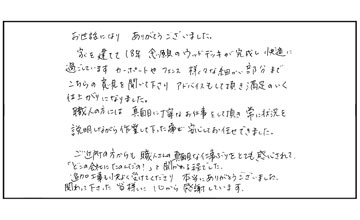 お世話になり ありがとうございました。
家を建てて18年 念願のウッドデッキが完成し 快適に
過ごしています カーポートやフェンス 様々な細かい部分まで
こちらの意見を聞いて下さり アドバイスもして頂き 満足のいく
仕上がりになりました。
職人の方には 真面目に丁寧なお仕事をして頂き 常に状況を
説明しながら作業して下った事で 安心してお任せできました。
ご近所の方からも 職人さんの真面目な仕事ぶりをとても感心されて
「どこの会社にたのんだの!」と聞かれる程でした。
追加工事も心よく受けてくださり 本当にありがとうございました。
関わって下さった 皆様に 心から感謝しています。